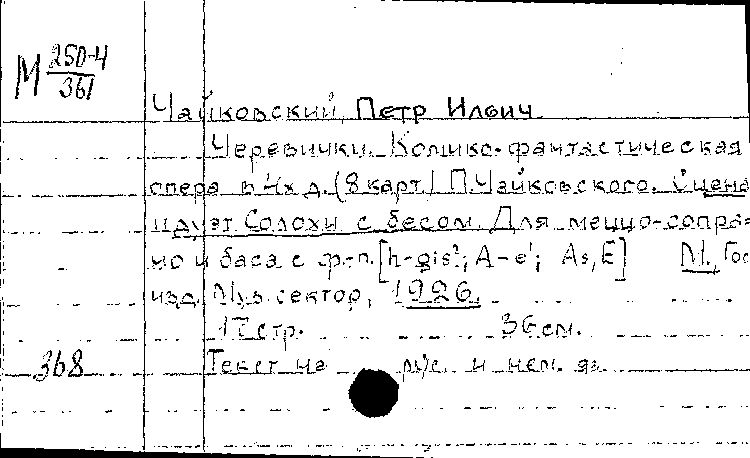 М 250-4
361
Чайковский, Петр Ильич.
Черевички. Комико-фантастическая
опера в 4х д. (8 карт.) П. Чайковского. Сцена
и дуэт Солохи с бесом. Для меццо-сопра-
но и баса с ф.-п. [h-gis²; A-e¹; As, E] М., Гос.
изд. Муз. сектор, 1926.
17 стр. 36 см.
368 Текст на рус. и нем. яз.